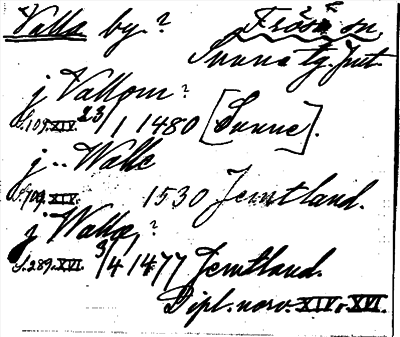 Valla by? Frösö sn
Sunne tg. Jmt.
j Vallom?
S.109.XIV. 23/1 1480 [Sunne].
j -- Walle
S.709.XIV. 1530 Jemtland.
j Wallæ?
S.289.XVI. 3/4 1477 Jemtland.
Dipl. norv. XIV, XVI.